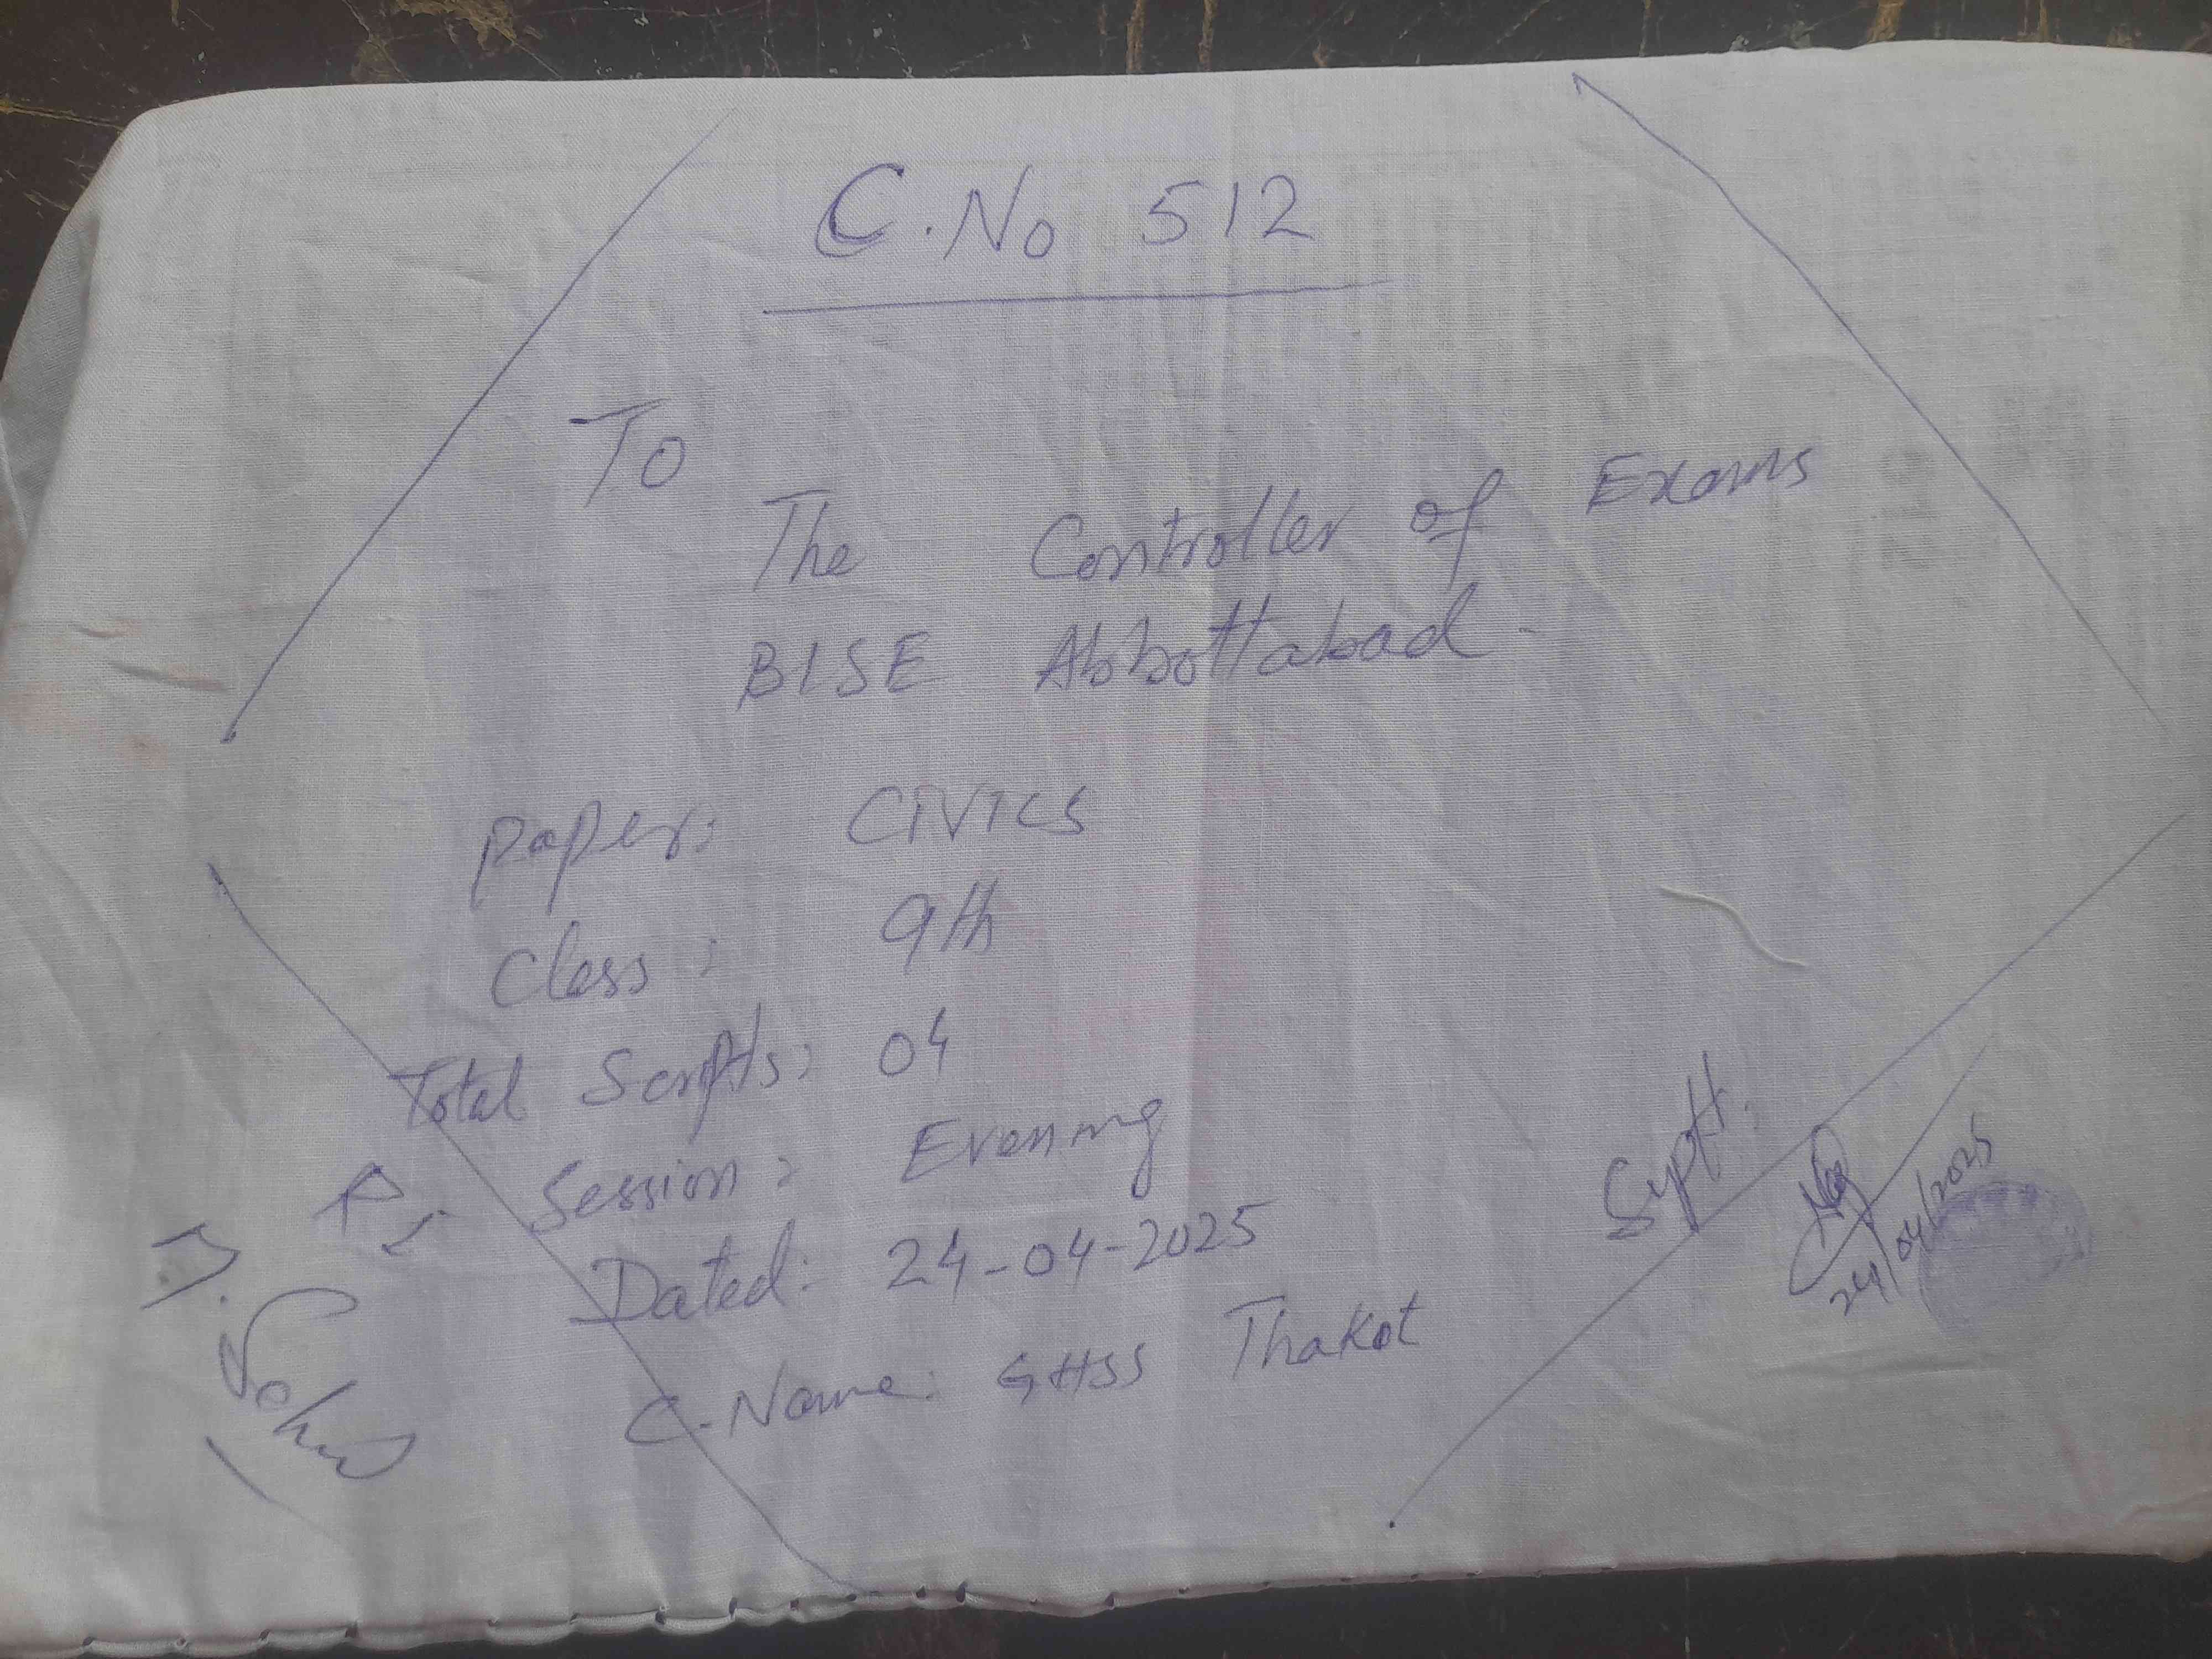 C.No 512
To
The Controller of Exams
BISE Abbottabad.
Paper: CIVICS
Class: 9th
Total Scripts: 04
Session: Evening
Dated: 24-04-2025
C-Name: GHSS Thakot
Suptt:
24/04/2025